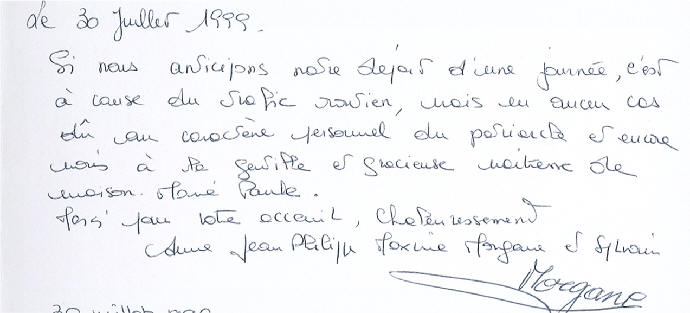 Le 30 Juillet 1999.
Si nous anticipons notre départ d'une journée, c'est
à cause du trafic routier, mais en aucun cas
dû au caractère personnel du patriarche et encore
moins à la gentille et gracieuse maîtresse de
maison. Marie Paule.
Merci pour votre acceuil, Chaleureusement
Anne Jean Philippe Maxime Morgane et Sylvain
Morgane